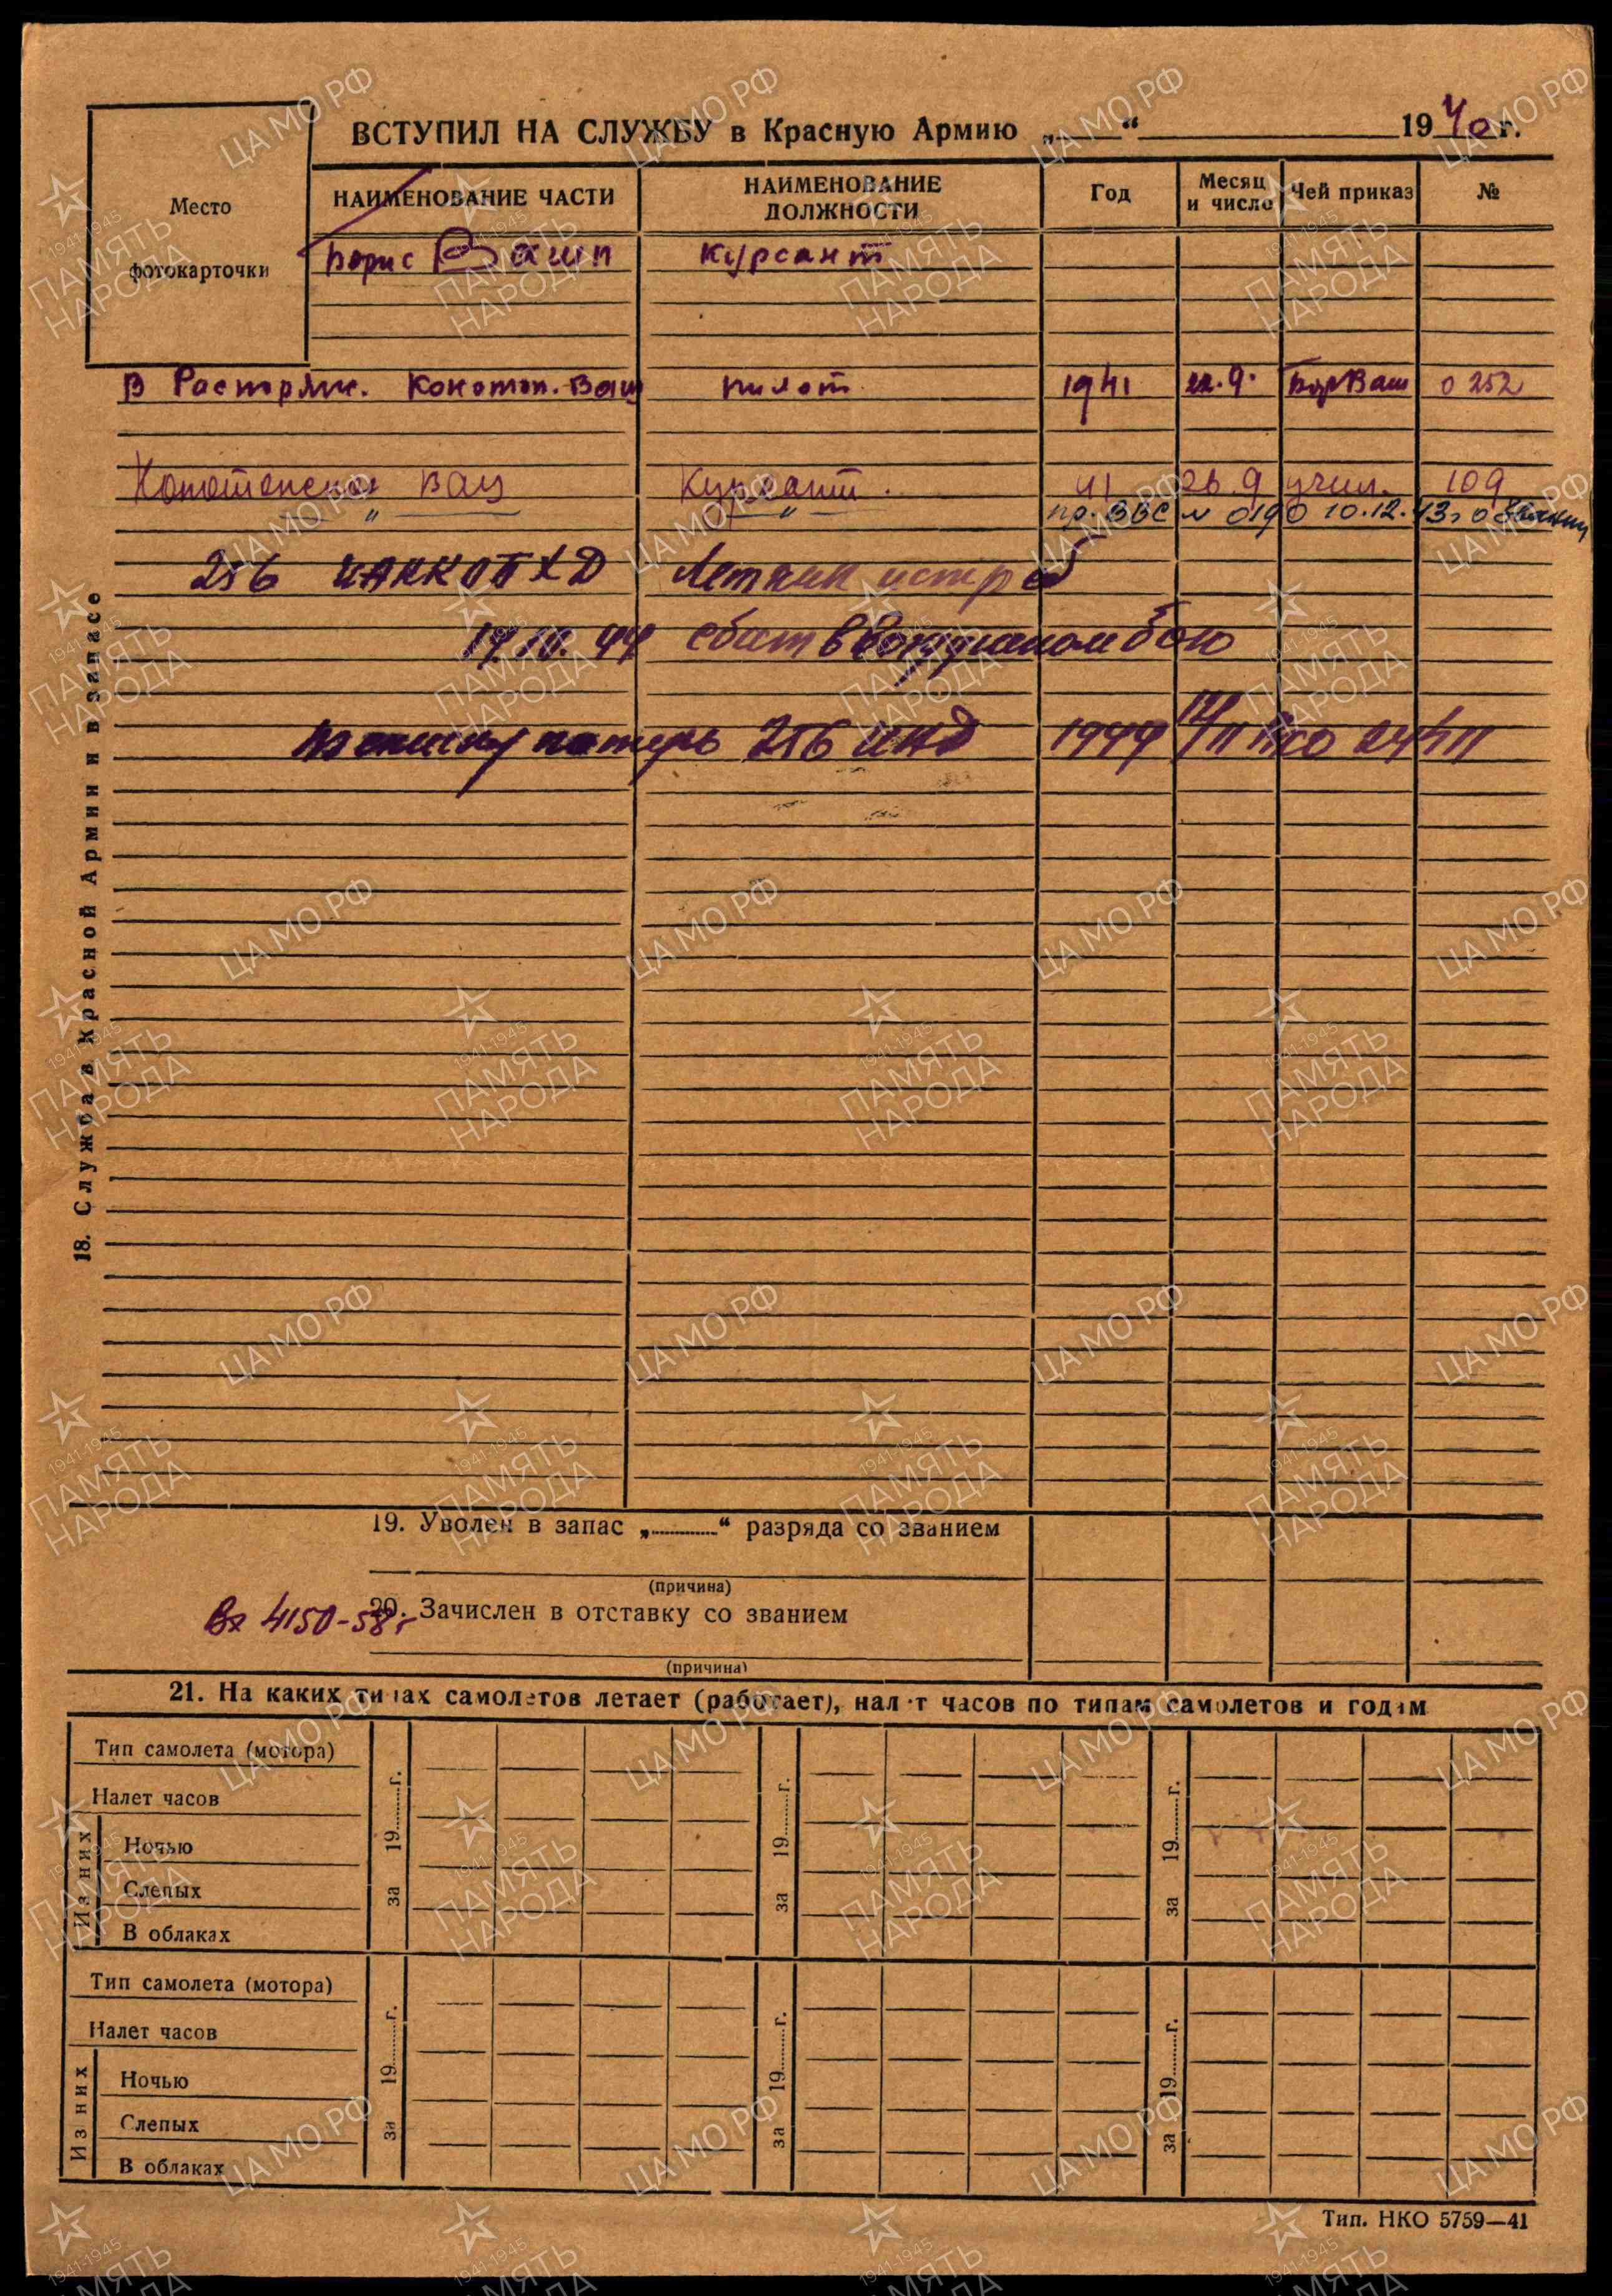 ВСТУПИЛ НА СЛУЖБУ в Красную Армию „ “ 1940 г.
Место
фотокарточки
НАИМЕНОВАНИЕ ЧАСТИ
НАИМЕНОВАНИЕ ДОЛЖНОСТИ
Год
Месяц и число
Чей приказ
№
Борис Вашп курсант
В Распоряж. Конотоп. Ваш пилот 1941 22.9. БорВаш 0252
Курсант 41 26.9 учил. 109
" " пр. ВВС № 0190 10.12.43г о
256 Летчик истреб
17.10.44 сбит в воздушном бою
потерь 256 ИАД 1944
18. Служба в Красной Армии и в запасе
19. Уволен в запас „ “ разряда со званием
(причина)
Вх 4150-58г
20. Зачислен в отставку со званием
(причина)
21. На каких типах самолетов летает (работает), налет часов по типам самолетов и годам
Тип самолета (мотора)
Налет часов
Из них
Ночью
Слепых
В облаках
за 19 г.
за 19 г.
за 19 г.
Тип самолета (мотора)
Налет часов
Из них
Ночью
Слепых
В облаках
за 19 г.
за 19 г.
за 19 г.
Тип. НКО 5759—41
ЦА МО РФ
1941-1945
ПАМЯТЬ
НАРОДА